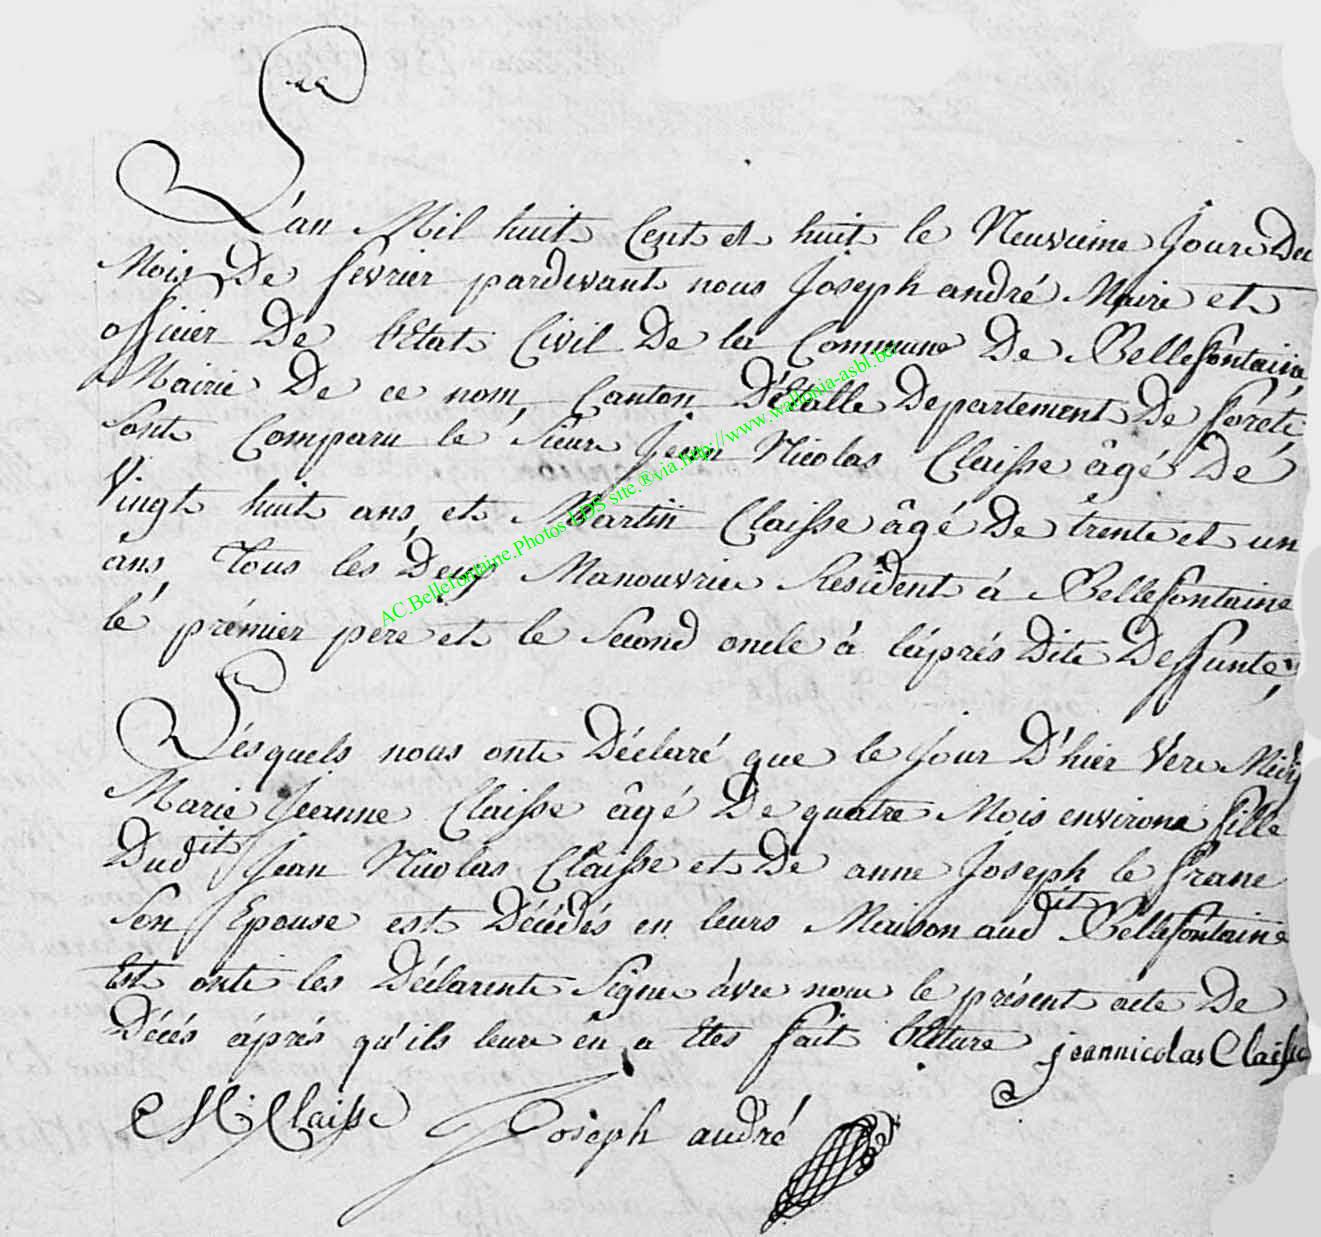 L'an Mil huit Cent et huit le Neuvieme Jour Du
Mois De fevrier pardevant nous Joseph andré Maire et
officier De l'Etat Civil De la Commune De Bellefontaine
Mairie De ce nom, Canton D'Etalle Departement De forêts
sont Comparu le sieur Jean Nicolas Claisse âgé Dé
Vingt huit ans et Martin Claisse âgé De trente et un
ans, tous les Deux Manouvrie Resident á Bellefontaine
lé prémier pere et le second oncle á l'áprés Dite Deffunte,
Lesquels nous ont Déclaré que le Jour D'hier Vere Midy
Marie Jeanne Claisse âgé De quatre Mois environs fille
Dudit Jean Nicolas Claisse et De anne Joseph le franc
son Epouse est Décédés en leurs Maison audit Bellefontaine
Est ont les Déclarent Signe ávec nous le présent acte De
Décés áprés qu'ils leur én a Etes fait lecture jeannicolas Claisse
M: Claisse Joseph andré
AC.Bellefontaine.Photos LDS site.®via.http://www.wallonia-asbl.be/